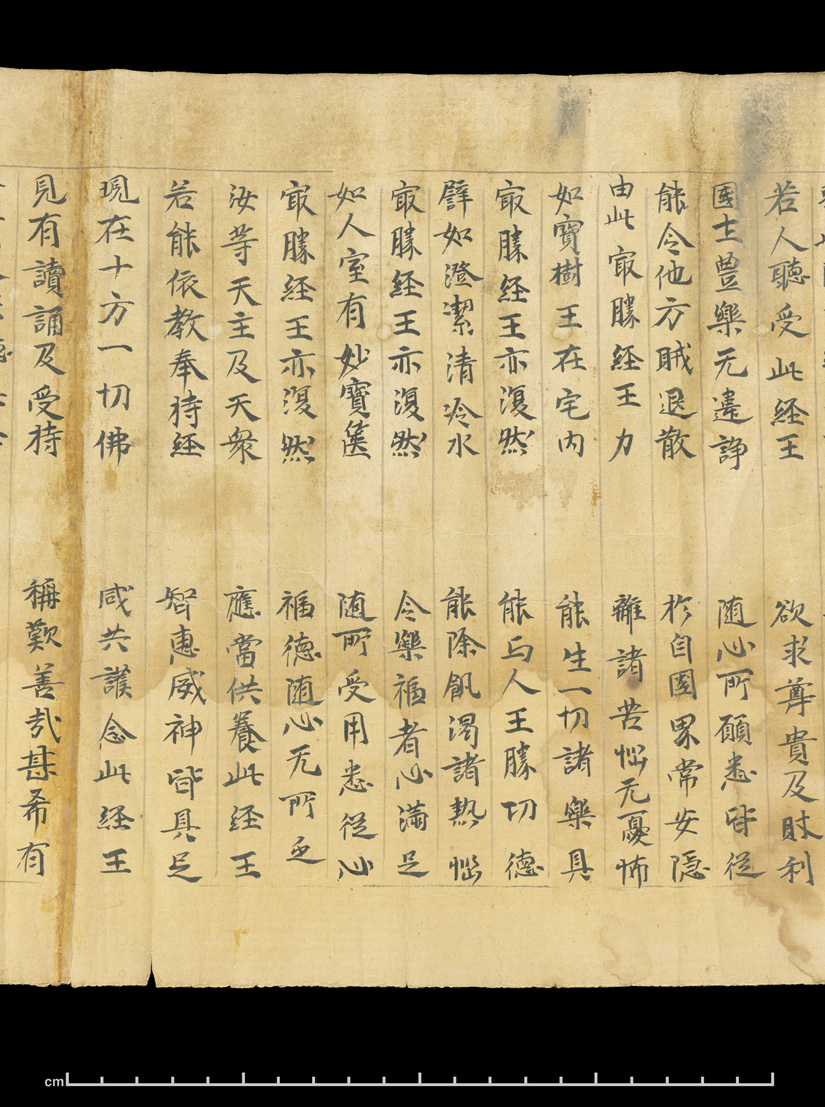 若人聽受此経王　欲求尊貴及財利
國土豊樂无違諍　随心所願悉皆従
能令他方賊退散　扵自國界常安隠
由此㝡勝経王力　離諸苦惱无憂怖
如寶樹王在宅内　能生一切諸樂具
㝡勝経王亦復然　能与人王勝切德
譬如澄潔清冷水　能除飢渇諸熱惱
㝡勝経王亦復然　令樂福者心満足
如人室有妙寶篋　随所受用悉従心
㝡勝経王亦復然　福德随心无所乏
汝等天主及天衆　應當供養此経王
若能依教奉持経　智惠威神皆具足
現在十方一切佛　咸共護念此経王
見有讀誦及受持　稱歎善哉甚希有
cm